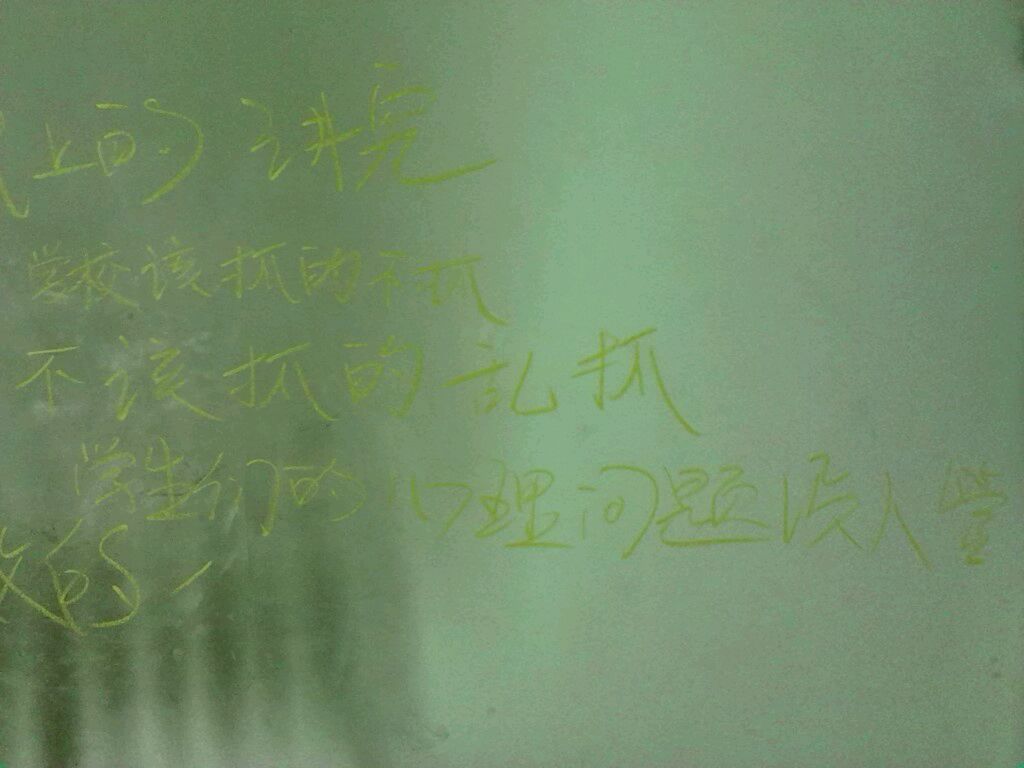 上的讲究
学校该抓的不抓
不该抓的乱抓
学生们的心理问题没人管
的